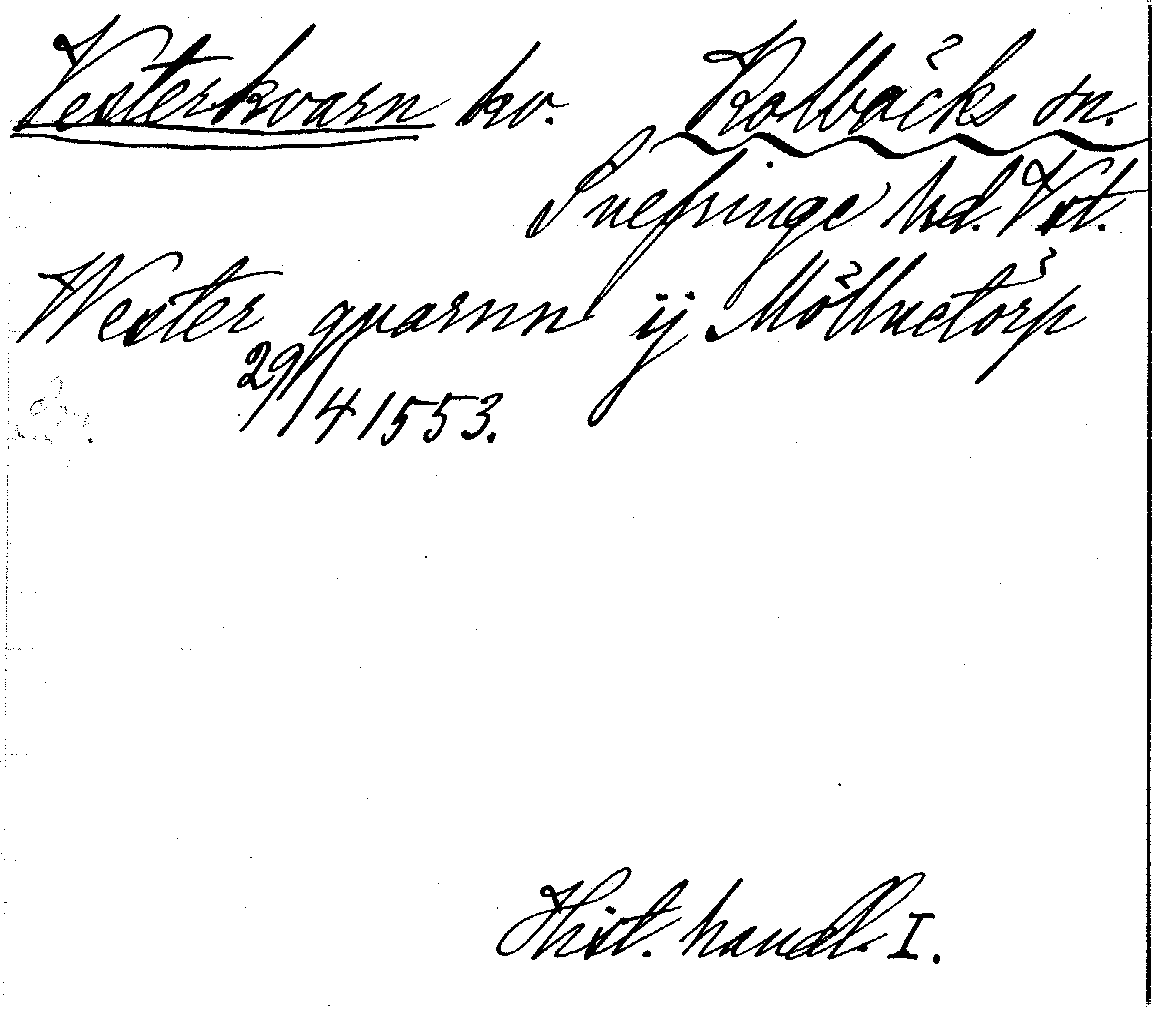 Vesterkvarn kv. Kolbäcks sn.
Snefringe hd. Vst.
Wester quarnn ij Möllnetörp
29/4 1553.
Hist. handl. I.